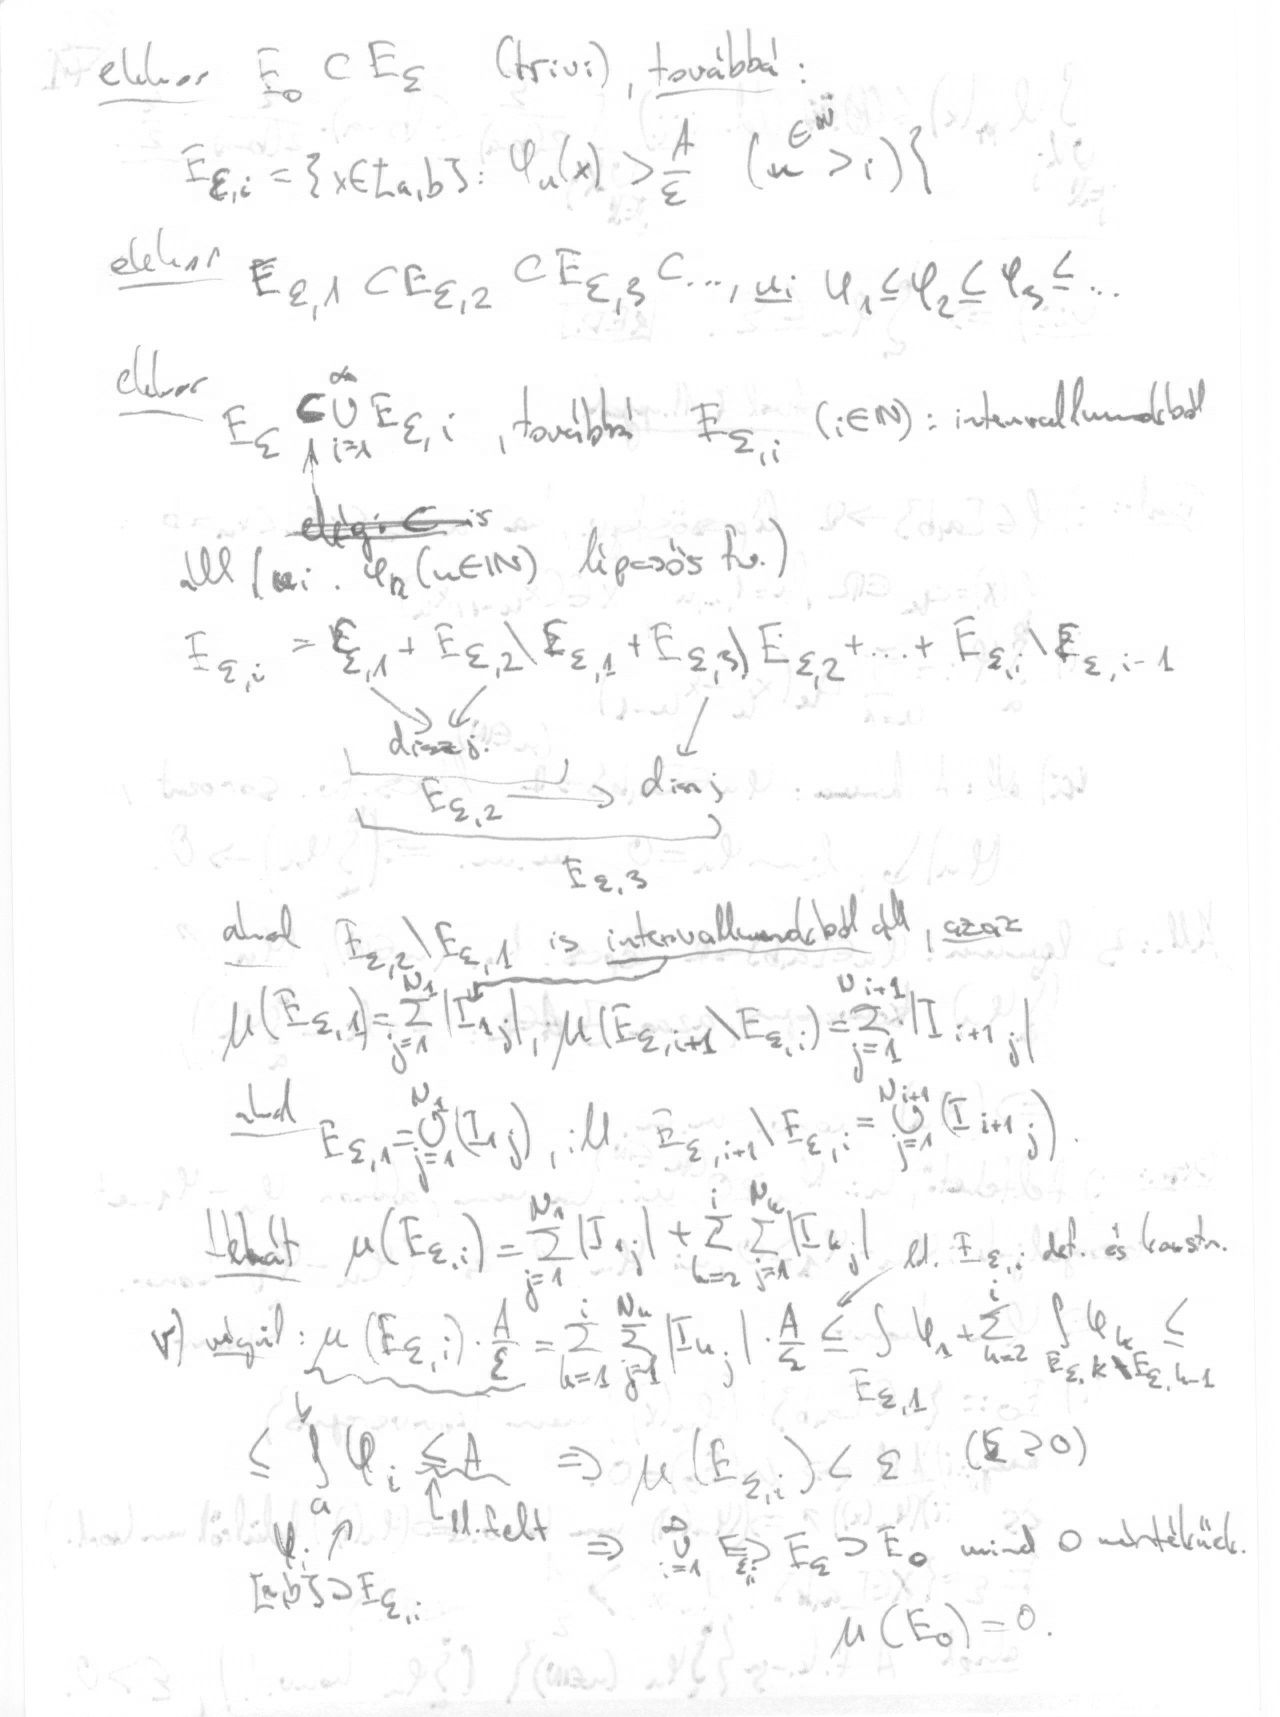 ekkor E₀ ⊂ E_ε (trivi), továbbá:
E_{ε,i} = {x∈[a,b]: φ_n(x) > A/ε (n^{∈ℕ} > i)}
ekkor E_{ε,1} ⊂ E_{ε,2} ⊂ E_{ε,3} ⊂ ..., ui φ₁ ≤ φ₂ ≤ φ₃ ≤ ...
ekkor E_ε ⊂ ∪_{i=1}^∞ E_{ε,i}, továbbá E_{ε,i} (i∈ℕ): intervallumokból
elég: ⊂ is
áll (ui. φ_n (n∈ℕ) lépcsős fv.)
E_{ε,i} = E_{ε,1} + E_{ε,2}\E_{ε,1} + E_{ε,3}\E_{ε,2} + ... + E_{ε,i}\E_{ε,i-1}
diszj.
E_{ε,2} → diszj
E_{ε,3}
ahol E_{ε,2}\E_{ε,1} is intervallumokból áll, azaz
μ(E_{ε,1}) = Σ_{j=1}^{N₁} |I_{1j}|, μ(E_{ε,i+1}\E_{ε,i}) = Σ_{j=1}^{N_{i+1}} |I_{i+1 j}|
ahol E_{ε,1} = ∪_{j=1}^{N₁} (I_{1j}), ill. E_{ε,i+1}\E_{ε,i} = ∪_{j=1}^{N_{i+1}} (I_{i+1 j}).
Tehát μ(E_{ε,i}) = Σ_{j=1}^{N₁} |I_{1j}| + Σ_{k=2}^{i} Σ_{j=1}^{N_k} |I_{kj}| ld. E_{ε,i} def. és konstr.
v) végül: μ(E_{ε,i}) · A/ε = Σ_{k=1}^{i} Σ_{j=1}^{N_k} |I_{kj}| · A/ε ≤ ∫_{E_{ε,1}} φ₁ + Σ_{k=2}^{i} ∫_{E_{ε,k}\E_{ε,k-1}} φ_k ≤
≤ ∫_a^b φ_i ≤ A ⇒ μ(E_{ε,i}) < ε (ε>0)
ld. felt ⇒ ∪_{i=1}^∞ E_{ε,i} ⊃ E_ε ⊃ E₀ mind 0 mértékűek.
φ_i
[a,b] ⊃ E_{ε,i}
μ(E₀) = 0.